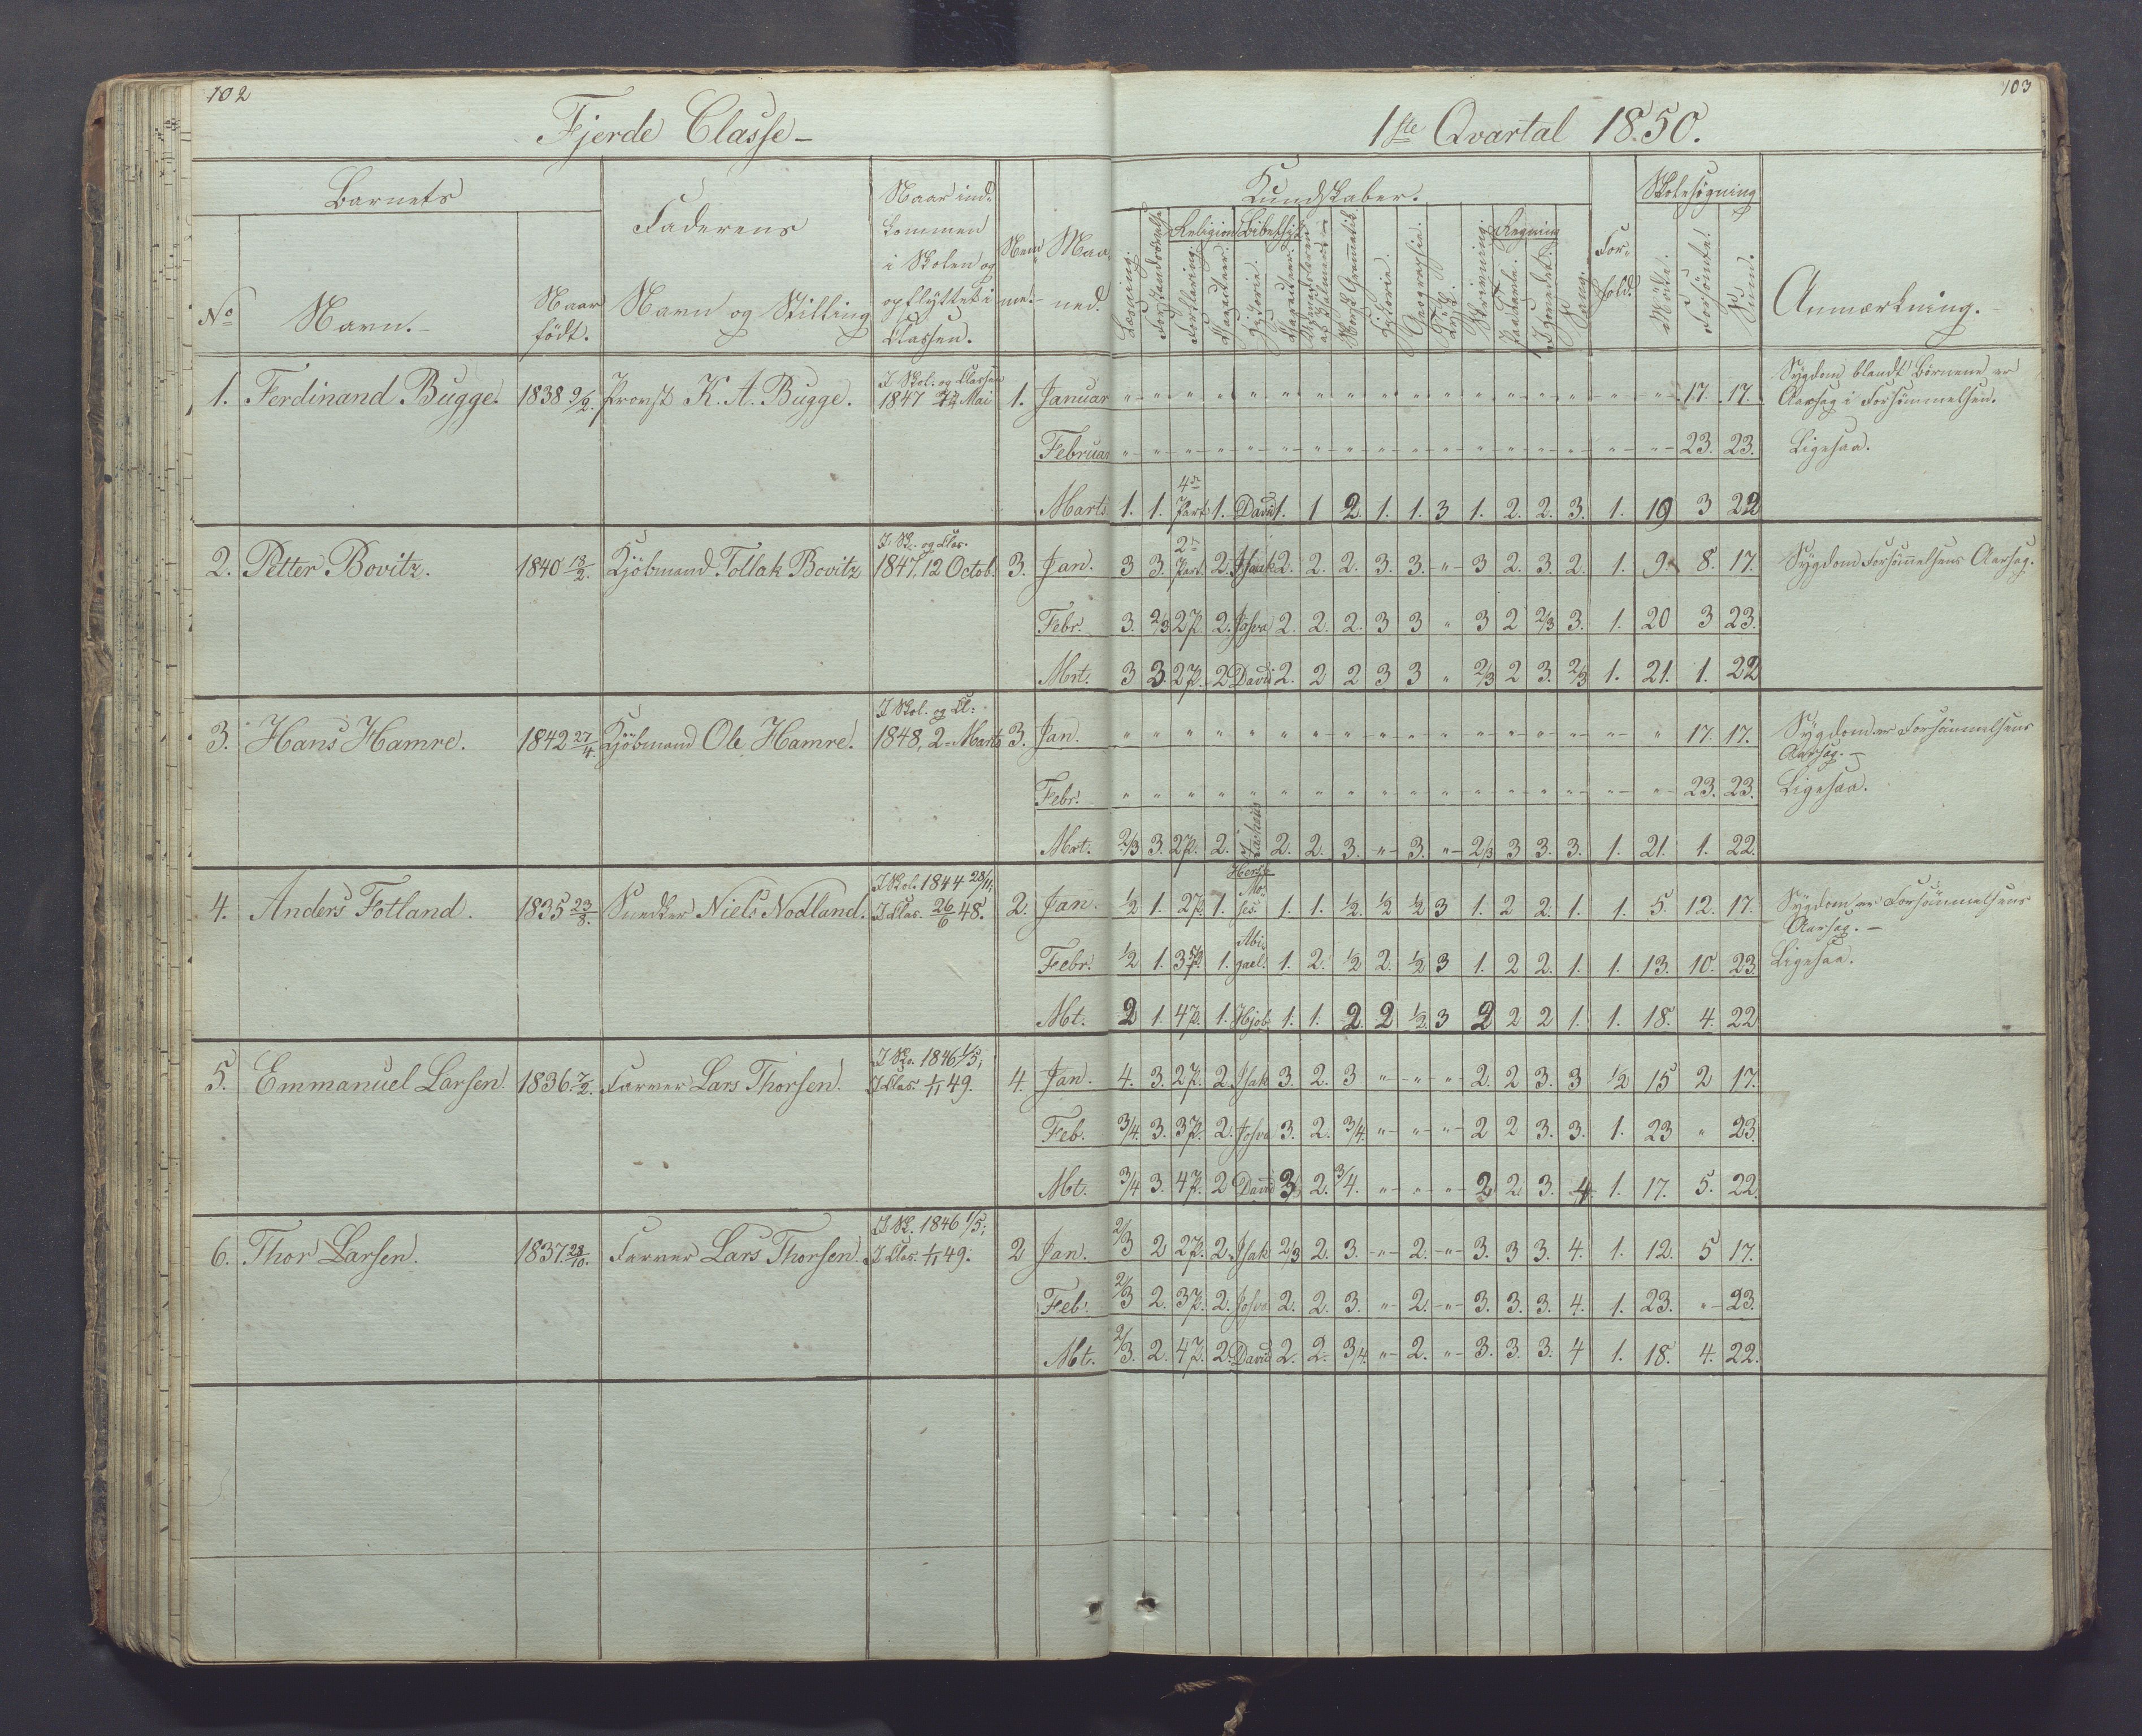 102
Fjerde Classe -
Barnets
Faderens
Naar ind-
kommen
i Skolen og
opflyttet i
Classen.
No
Navn. -
Naar
født.
Navn og Stilling
Maa-
ned.
103
1ste Qvartal 1850.
Kundskaber.
Skolesøgning
Læsning.
Forstandsøvelse
Religion
Forklaring.
Bibelhist.
Historie.
Norsk Gramatik.
Historie.
Geographie.
Skrivning.
Regning
Paa Tavle.
I Hovedet.
Sang.
For-
hold.
Mødte.
Forsømte.
Sum.
Anmærkning.
1. Ferdinand Bugge. 1838 9/2. Provst K. A. Bugge. I Skol. og Classen 1847 Mai 1. Januar " " " " " " " " " " " " " " " " " 17. 17. Sygdom blandt Børnene er
Aarsag i Forsømmelsen.
Februar " " " " " " " " " " " " " " " " " 23. 23. Ligesaa.
Marts 1. 1. 4de Part 1. David 1. 1 2. 1. 1. 3 1. 2. 2. 3. 1. 19 3 22
2. Petter Bovitz. 1840 13/2. Kjøbmand Tollak Bovitz I Sk. og Clas. 1847, 12 Octob. 3. Jan. 3 3. 2n Part. 2. Isaak 2. 2. 2. 3. 3. " 3 2. 3. 2. 1. 9. 8. 17. Sygdom Forsømmelsens Aarsag.
Febr. 3. 2/3 2 p. 2. Josva 2. 2. 2. 3 3 " 3 2 2/3 3. 1. 20 3 23.
Mrt. 3 3. 2 p. 2 David 2. 2 2 3 3 " 2/3 2 3. 2/3 1. 21. 1. 22
3. Hans Hamre. 1842 27/4. Kjøbmand Ole Hamre. I Skol. og Cl: 1848, 2 Marts 3. Jan. " " " " " " " " " " " " " " " " " 17. 17. Sygdom er Forsømmelsens
Aarsag. -
Febr. " " " " " " " " " " " " " " " " " 23. 23. Ligesaa.
Mrt. 2/3 3. 2 p. 2. 2. 2. 3. " 3. " 2/3 3 3. 3. 1. 21. 1. 22.
4. Anders Fotland. 1835 23/8. Snedker Niels Nodland. I Skol. 1844 28/11; I Clas. 26/6 48. 2. Jan. 1/2 1. 2 p. 1. Moses. 1. 1. 1/2. 1/2 1/2 3 1. 2 2. 1. 1. 5. 12. 17. Sygdom er Forsømmelsens
Aarsag. -
Febr. 1/2 1. 3 p. 1. Abigael. 1. 2. 1/2 2. 1/2 3 1. 2 2. 1. 1. 13. 10. 23 Ligesaa.
Mt. 2 1. 4 p. 1. Hjob 1. 1. 2. 2 1/2. 3 2 2 2 1. 1. 18. 4. 22
5. Emmanuel Larsen. 1836. 7/2. Farver Lars Thorsen. I Sko. 1846 1/5; I Clas. 1/11 49. 4. Jan. 4. 3. 2 p. 2. Isak 3. 2. 3 " " " 2. 2 3. 3 1/2 15 2 17.
Feb. 3/4. 3. 3 p. 2. Josva 3. 2. 3/4. " " " 2 2 3. 3. 1. 23 " 23.
Mt. 3/4 3. 4 p. 2 David 3. 2. 3/4. " " " 2 2 3. 4 1. 17. 5. 22.
6. Thor Larsen. 1837. 28/10. Farver Lars Thorsen. I Sk. 1846 1/5; I Clas. 1/11 49. 2 Jan. 2/3 2 2 p. 2. Isak 2/3 2. 3. " 2. " 3. 3 3. 4. 1. 12. 5 17.
Feb. 2/3 2. 3 p. 2. Josva 2. 2. 3. " 2. " 3. 3. 3. 4. 1. 23. " 23.
Mt. 2/3. 2. 4 p. 2. David 2. 2. 3/4. " 2. " 3. 3. 3. 4 1. 18. 4. 22.